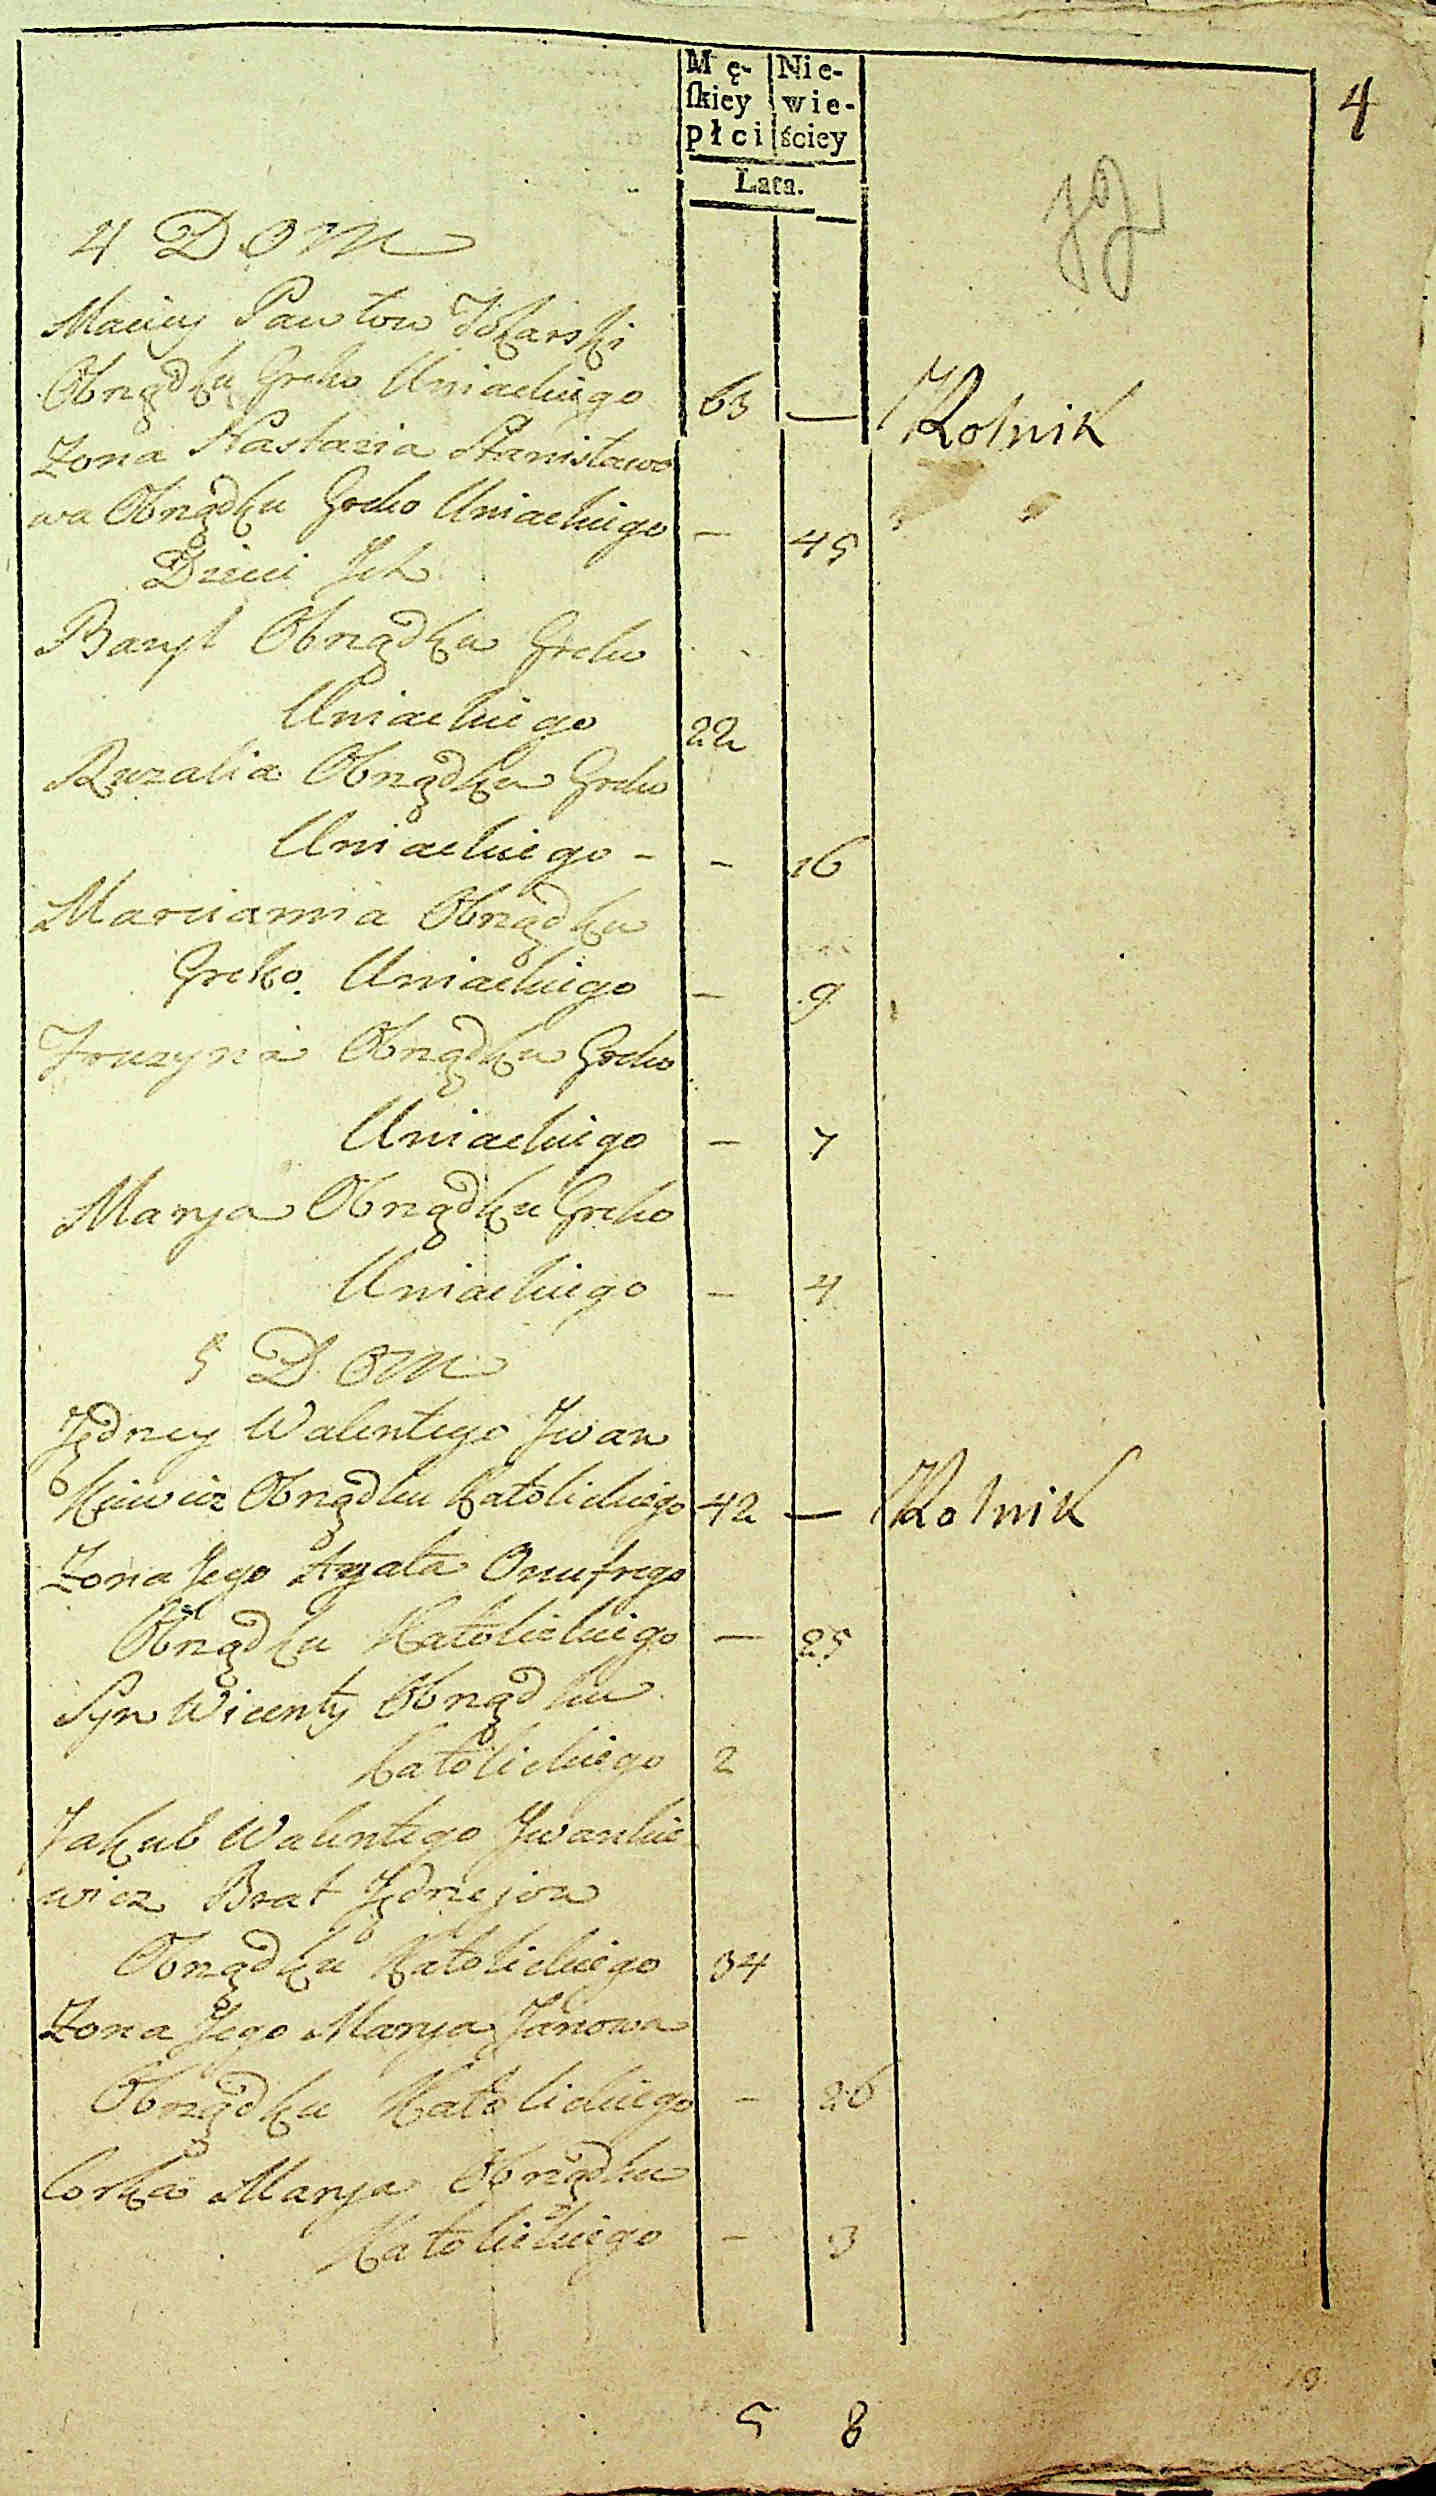 Mę- Nie-
skiey wie-
płci ściey
Lata.
4
4 Dom
Maciey Pawłow Tokarski
Obrządku Greko Uniackiego 63 — Rolnik
Zona Nastazia Stanisławo
wa Obrządku Greko Uniackiego — 45
Dzieci Ich
Bazyl Obrządku Greko
Uniackiego 22
Ruzalia Obrządku Greko
Uniackiego - - 16
Marcianna Obrządku
Greko Uniackiego — 9
Fruzyna Obrządku Greko
Uniackiego — 7
Marya Obrządku Greko
Uniackiego — 4
5 Dom
Jędrzey Walentego Iwan
kiewicz Obrządku Katolickiego 42 — Rolnik
Zona Jego Agata Onufrego
Obrządku Katolickiego — 25
Syn Wicenty Obrządku
Katolickiego 2
Jakub Walentego Iwankie
wicz Brat Jędrzejow
Obrządku Katolickiego 34
Zona Jego Marya Janowa
Obrządku Katolickiego - 26
Corka Marya Obrządku
Katolickiego - 3
5 8